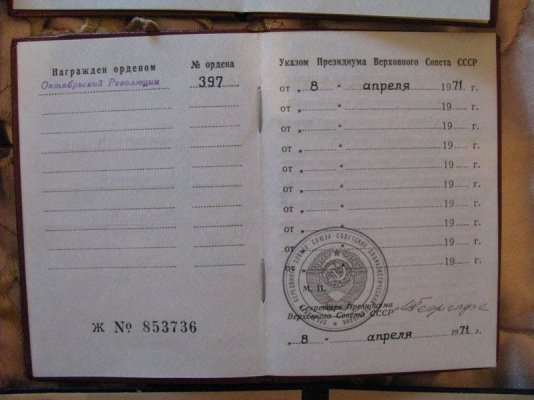 Награжден орденом
№ ордена
Октябрьской Революции
397
Ж № 853736
Указом Президиума Верховного Совета СССР
от „ 8 “ апреля 1971 г.
от „ “ 19 г.
от „ “ 19 г.
от „ “ 19 г.
от „ “ 19 г.
от „ “ 19 г.
от „ “ 19 г.
от „ “ 19 г.
от „ “ 19 г.
от „ “ 19 г.
М. П.
Секретарь Президиума
Верховного Совета СССР
„ 8 “ апреля 1971 г.